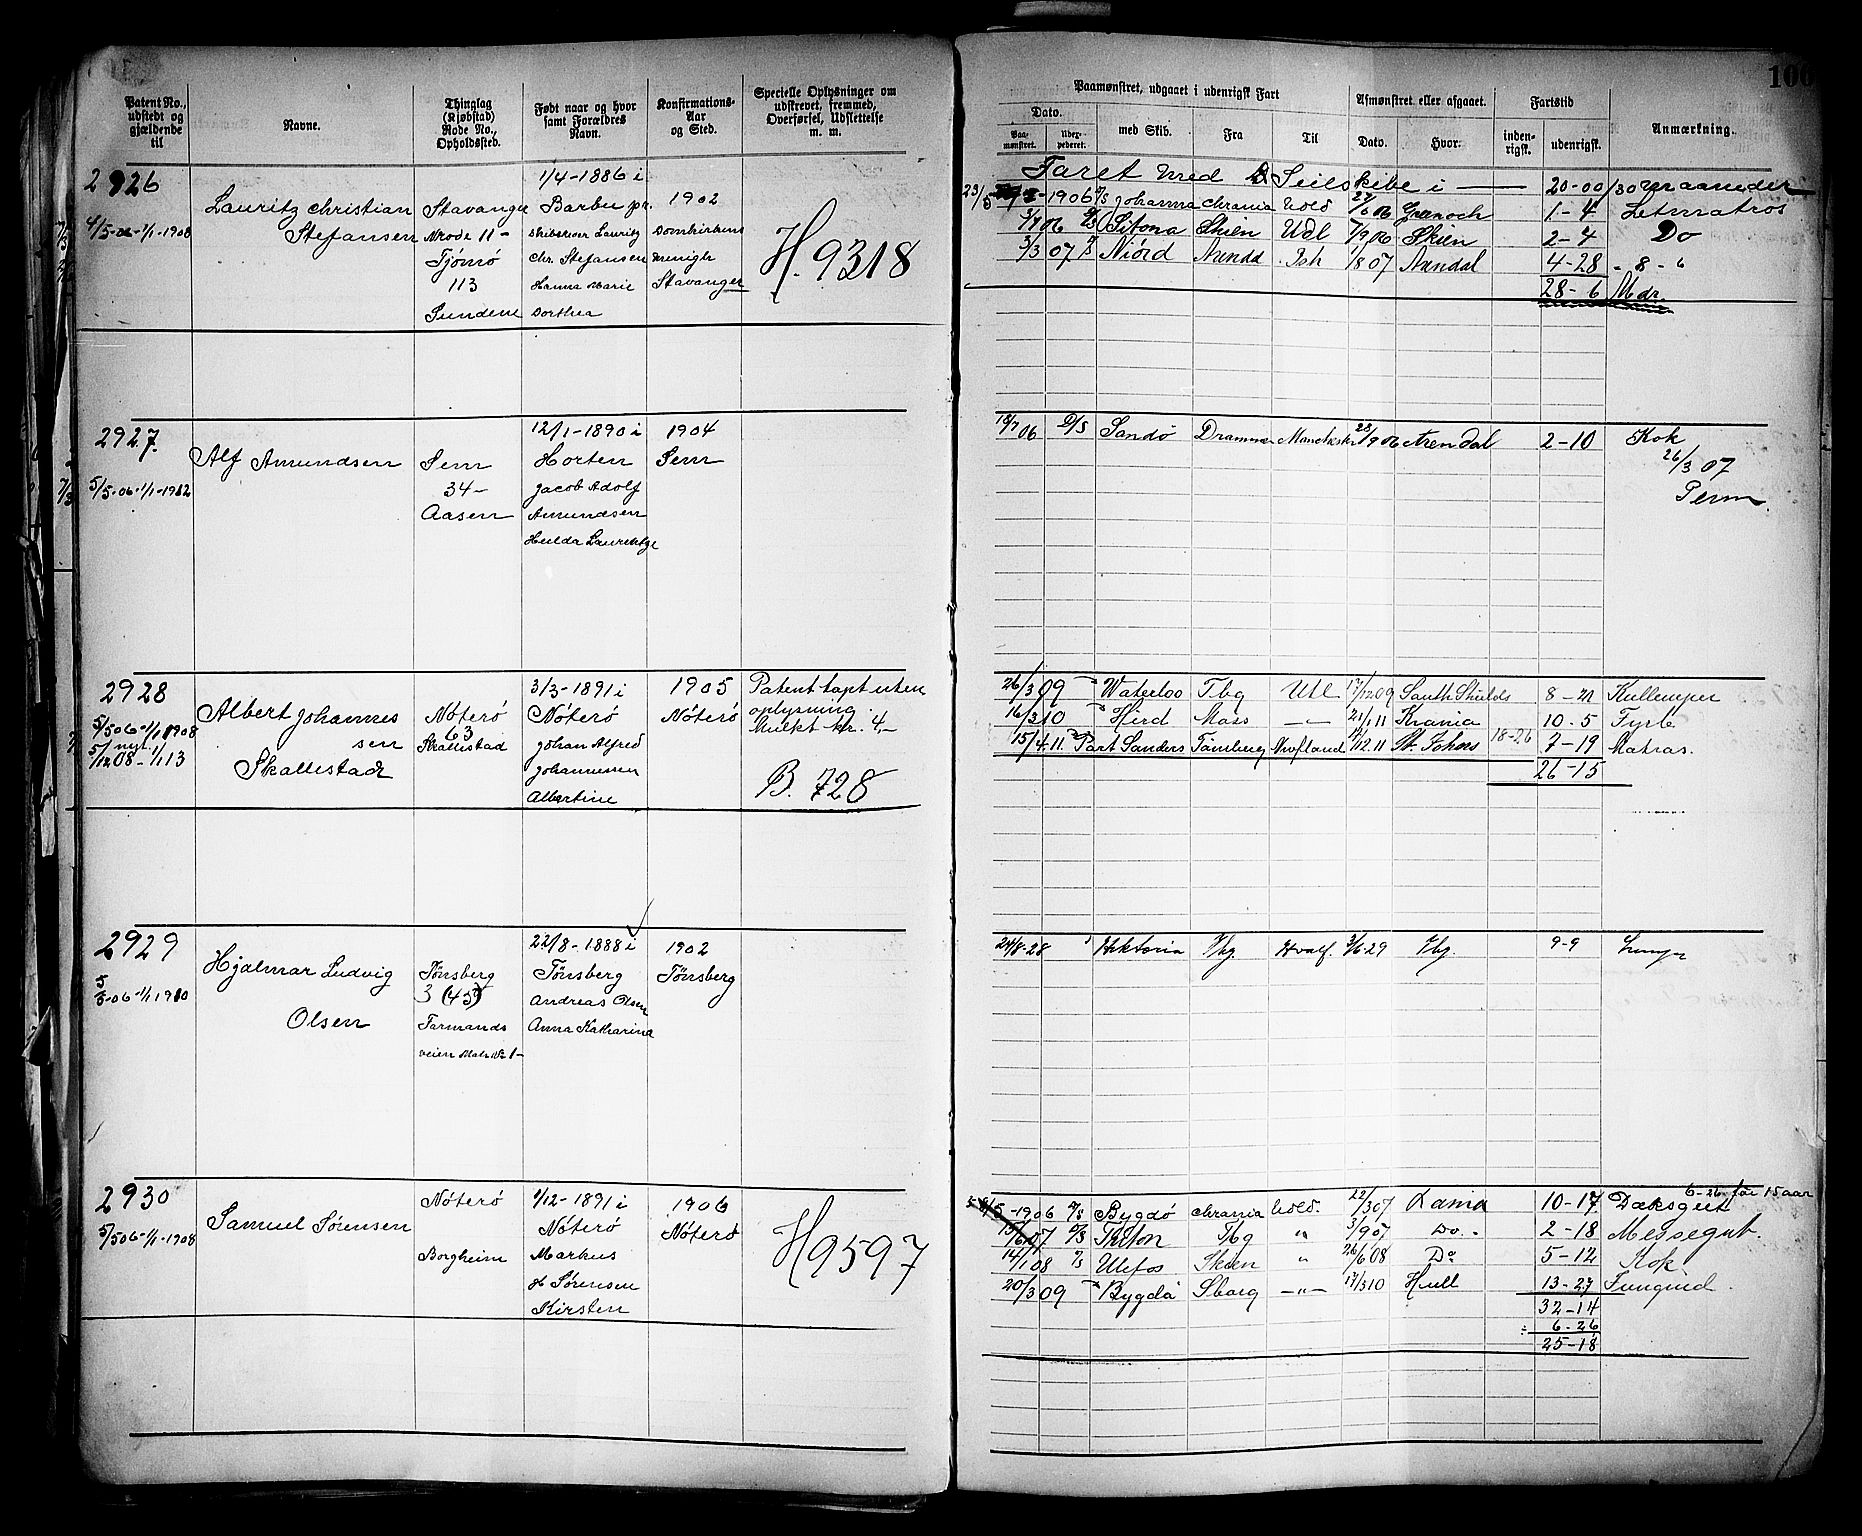 106
Patent No., udstedt og gjældende til
Navne.
Thinglag (Kjøbstad) Rode No., Opholdssted.
Født naar og hvor samt Forældres Navn.
Konfirmations-Aar og Sted.
Specielle Oplysninger om udskrevet, fremmed, Overførsel, Udslettelse m. m.
Paamønstret, udgaaet i udenrigsk Fart
Dato.
Paa-mønstret.
med Skib.
Fra
Til
Afmønstret eller afgaaet.
Dato.
Hvor.
Fartstid
inden-rigsk.
udenrigsk.
Anmærkning.
2926
4/5-06-1/1-1908
Lauritz Christian
Stefansen
Stavanger
Rode 11-
Tjømø
113
Sundene
1/4-1886 i
Barbu pr.
Lauritz
Chr. Stefansen
Hanna Marie
Dorthea
1902
Domkirkens
menigh
Stavanger
H. 9318
Faret med Seilskibe i — 20-00/30 maaneder
23/5-1906 Johanna Chrania Uold 27/6 06 Greenoch 1-4 Letmatros
5/7 06 Sitona Skien Udl 7/9 06 Skien 2-4 Do
3/3 07 Niörd Arendal 1/8 07 Arendal 4-28 - 8 - "
28-6 Mdr.
2927
5/5-06-1/1-1912
Alf Amundsen
Sem
34-
Aasen
12/1-1890 i
Horten
Jacob Adolf
Amundsen
Hulda Lauentze
1904
Sem
18/7 06 D/S Sandø Drammen Manchester 28/9 06 Arendal 2-10 Kok
26/3 07
Perm.
2928
5/5 06-1/1 1908
nyt.
5/12 08-1/1 13
Albert Johannes
sen
Skallestad
Nøterø
63
Skallestad
3/3-1891 i
Nøterø
Johan Alfred
Johannessen
Albertine
1905
Nøterø
Patent tapt uten
oplysning.
Mulkt kr. 4,-
B. 728
26/3 09 Waterloo Tbg Utl 17/12 09 South Shields 8-21 Kullemper
16/3 10 Hird Moss —"— 21/1 11 Krania 10-5 Fyrb
15/4 11. Part Sanders Tønsberg Nwfland 12 11 St. Johns 18-26 7-19 Matros.
26-15
2929
5/5-06-1/1 1910
Hjalmar Ludvig
Olsen
Tønsberg
3 (45)
Farmands
veien Matr No 1-
22/8-1888 i
Tønsberg
Andreas Olsen
Anna Katharina
1902
Tønsberg
24/8-28 Viktoria Tbg. Hvalf. 3/6-29 Tbg. 9-9
2930
5/5 06-1/1-1908
Samuel Sørensen
Nøterø
Borgheim
1/12-1891 i
Nøterø
Markus
H Sørensen
Kirsten
1906
Nøterø
H 9597
6-26 før 15 aar
5/5-1906 D/S Bygdø Chrania Uold. 22/3 07 Lania 10-17 Dæksgut
15/6 07 D/S Triton Tbg " 3/9 07 Do. 2-18 Messegut.
14/1 08 Ulefos Skien " 26/6 08 Do 5-12 Kok
20/3 09 Bygdø Sborg —"— 17/3 10 Hull 13-27 Jungmd.
32-14
÷ 6-26
25-18